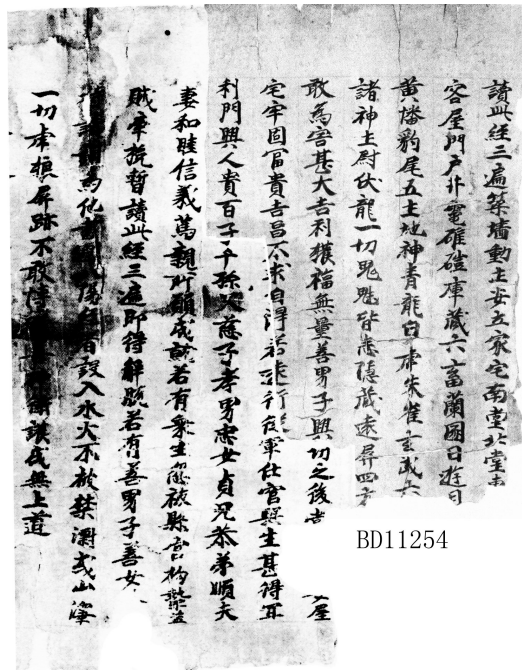 讀此經三遍築墻動土安立家宅南堂北堂東
客屋門戶井竈碓磑庫藏六畜蘭圂日遊月
黃幡豹尾五土地神青龍白虎朱雀玄武六
諸神土尉伏龍一切鬼魅皆悉隱藏遠屏四方
敢為害甚大吉利獲福無量善男子興切之後堂
宅牢固冨貴吉昌不求自得若遠行從軍仕官興生甚得冝
利門興人貴百子千孫父慈子孝男忠女貞兄恭弟順夫
妻和睦信義萬親所願成就若有衆生忽被縣官拘繫盗
賊牽挽暫讀此經三遍即得解脫若有善男子善女
為他 設入水火不被焚漂或山澤
一切虎狼屏跡不敢 成無上道
BD11254